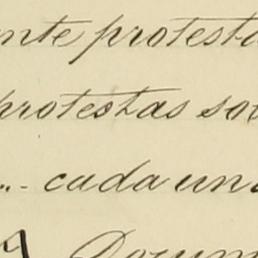 nte protesta
protestas so
... cada un
A Docum